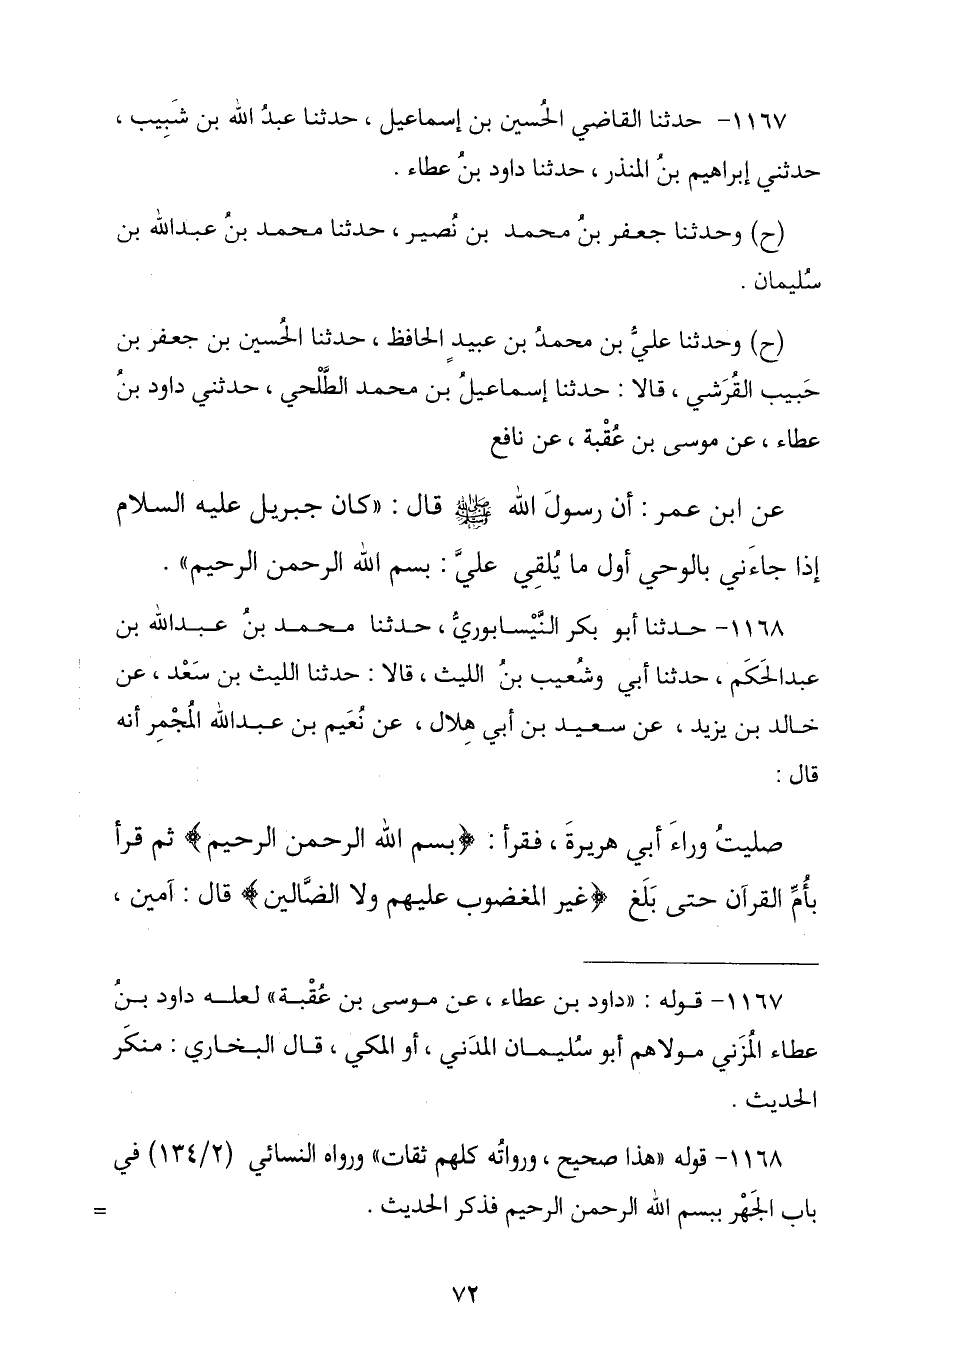 ١١٦٧- حدثنا القاضي الحُسين بن إسماعيل ، حدثنا عبدُ الله بن شَبِيب ،
حدثني إبراهيم بنُ المنذر ، حدثنا داود بنُ عطاء .
(ح) وحدثنا جعفر بنُ محمد بن نُصير ، حدثنا محمد بنُ عبدالله بن
سُليمان .
(ح) وحدثنا عليُّ بن محمدُ بن عبيدٍ الحافظ ، حدثنا الحُسين بن جعفر بن
حَبيب القُرَشي ، قالا : حدثنا إسماعيلُ بن محمد الطَّلْحي ، حدثني داود بنُ
عطاء ، عن موسى بن عُقْبة ، عن نافع
عن ابن عمر : أن رسولَ الله ﷺ قال : «كان جبريل عليه السلام
إذا جاءَني بالوحي أول ما يُلقِي عليَّ : بسم الله الرحمن الرحيم» .
١١٦٨- حدثنا أبو بكر النَّيْسابوريُّ ، حدثنا محمد بنُ عبدالله بن
عبدالحَكَم ، حدثنا أبي وشُعيب بنُ الليث ، قالا : حدثنا الليث بن سَعْد ، عن
خالد بن يزيد ، عن سعيد بن أبي هِلال ، عن نُعَيم بن عبدالله المُجْمِر أنه
قال :
صليتُ وراءَ أبي هريرةَ ، فقرأ : ﴿بسم الله الرحمن الرحيم﴾ ثم قرأ
بأُمِّ القرآن حتى بَلَغ ﴿غير المغضوب عليهم ولا الضَّالين﴾ قال : آمين ،
١١٦٧- قوله : «داود بن عطاء ، عن موسى بن عُقْبة» لعله داود بنُ
عطاء المُزَني مولاهم أبو سُليمان المدَني ، أو المكي ، قال البخاري : منكَر
الحديث .
١١٦٨- قوله «هذا صحيح ، ورواتُه كلهم ثقات» ورواه النسائي (١٣٤/٢) في
باب الجَهْر ببسم الله الرحمن الرحيم فذكر الحديث . =
٧٢